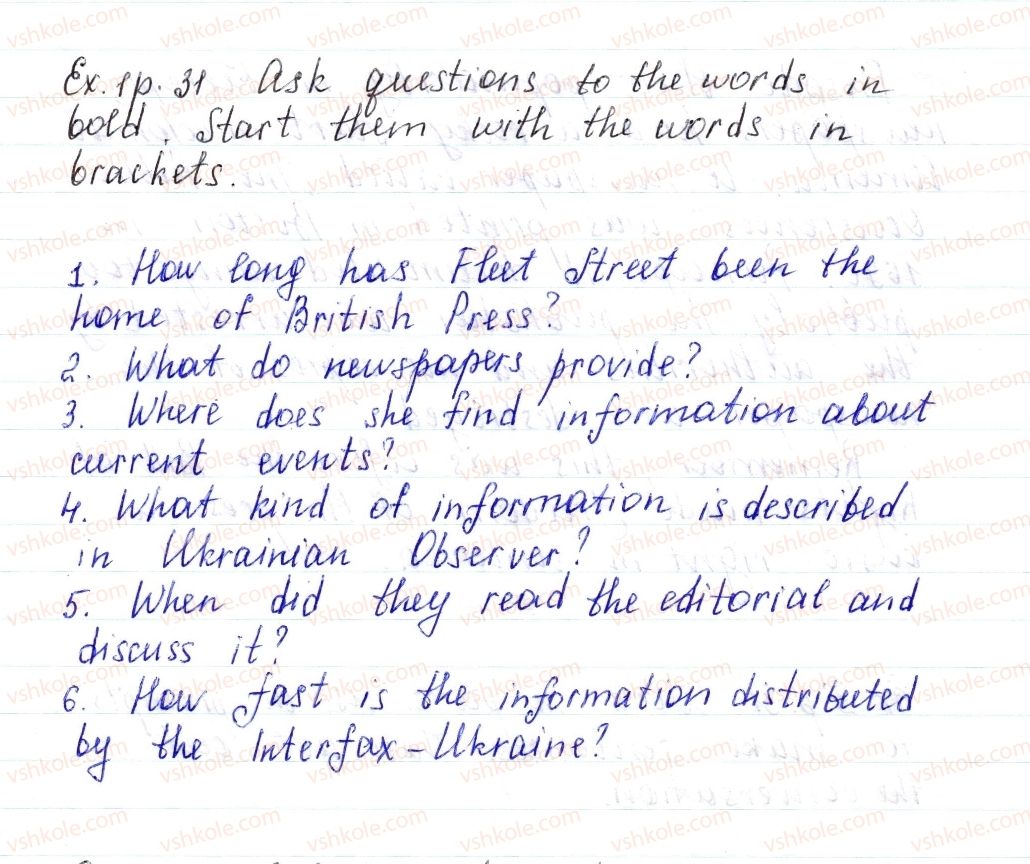 Ex. 1 p. 31 Ask questions to the words in
bold. Start them with the words in
brackets.
1. How long has Fleet Street been the
home of British Press?
2. What do newspapers provide?
3. Where does she find information about
current events?
4. What kind of information is described
in Ukrainian Observer?
5. When did they read the editorial and
discuss it?
6. How fast is the information distributed
by the Interfax-Ukraine?
vshkole.com